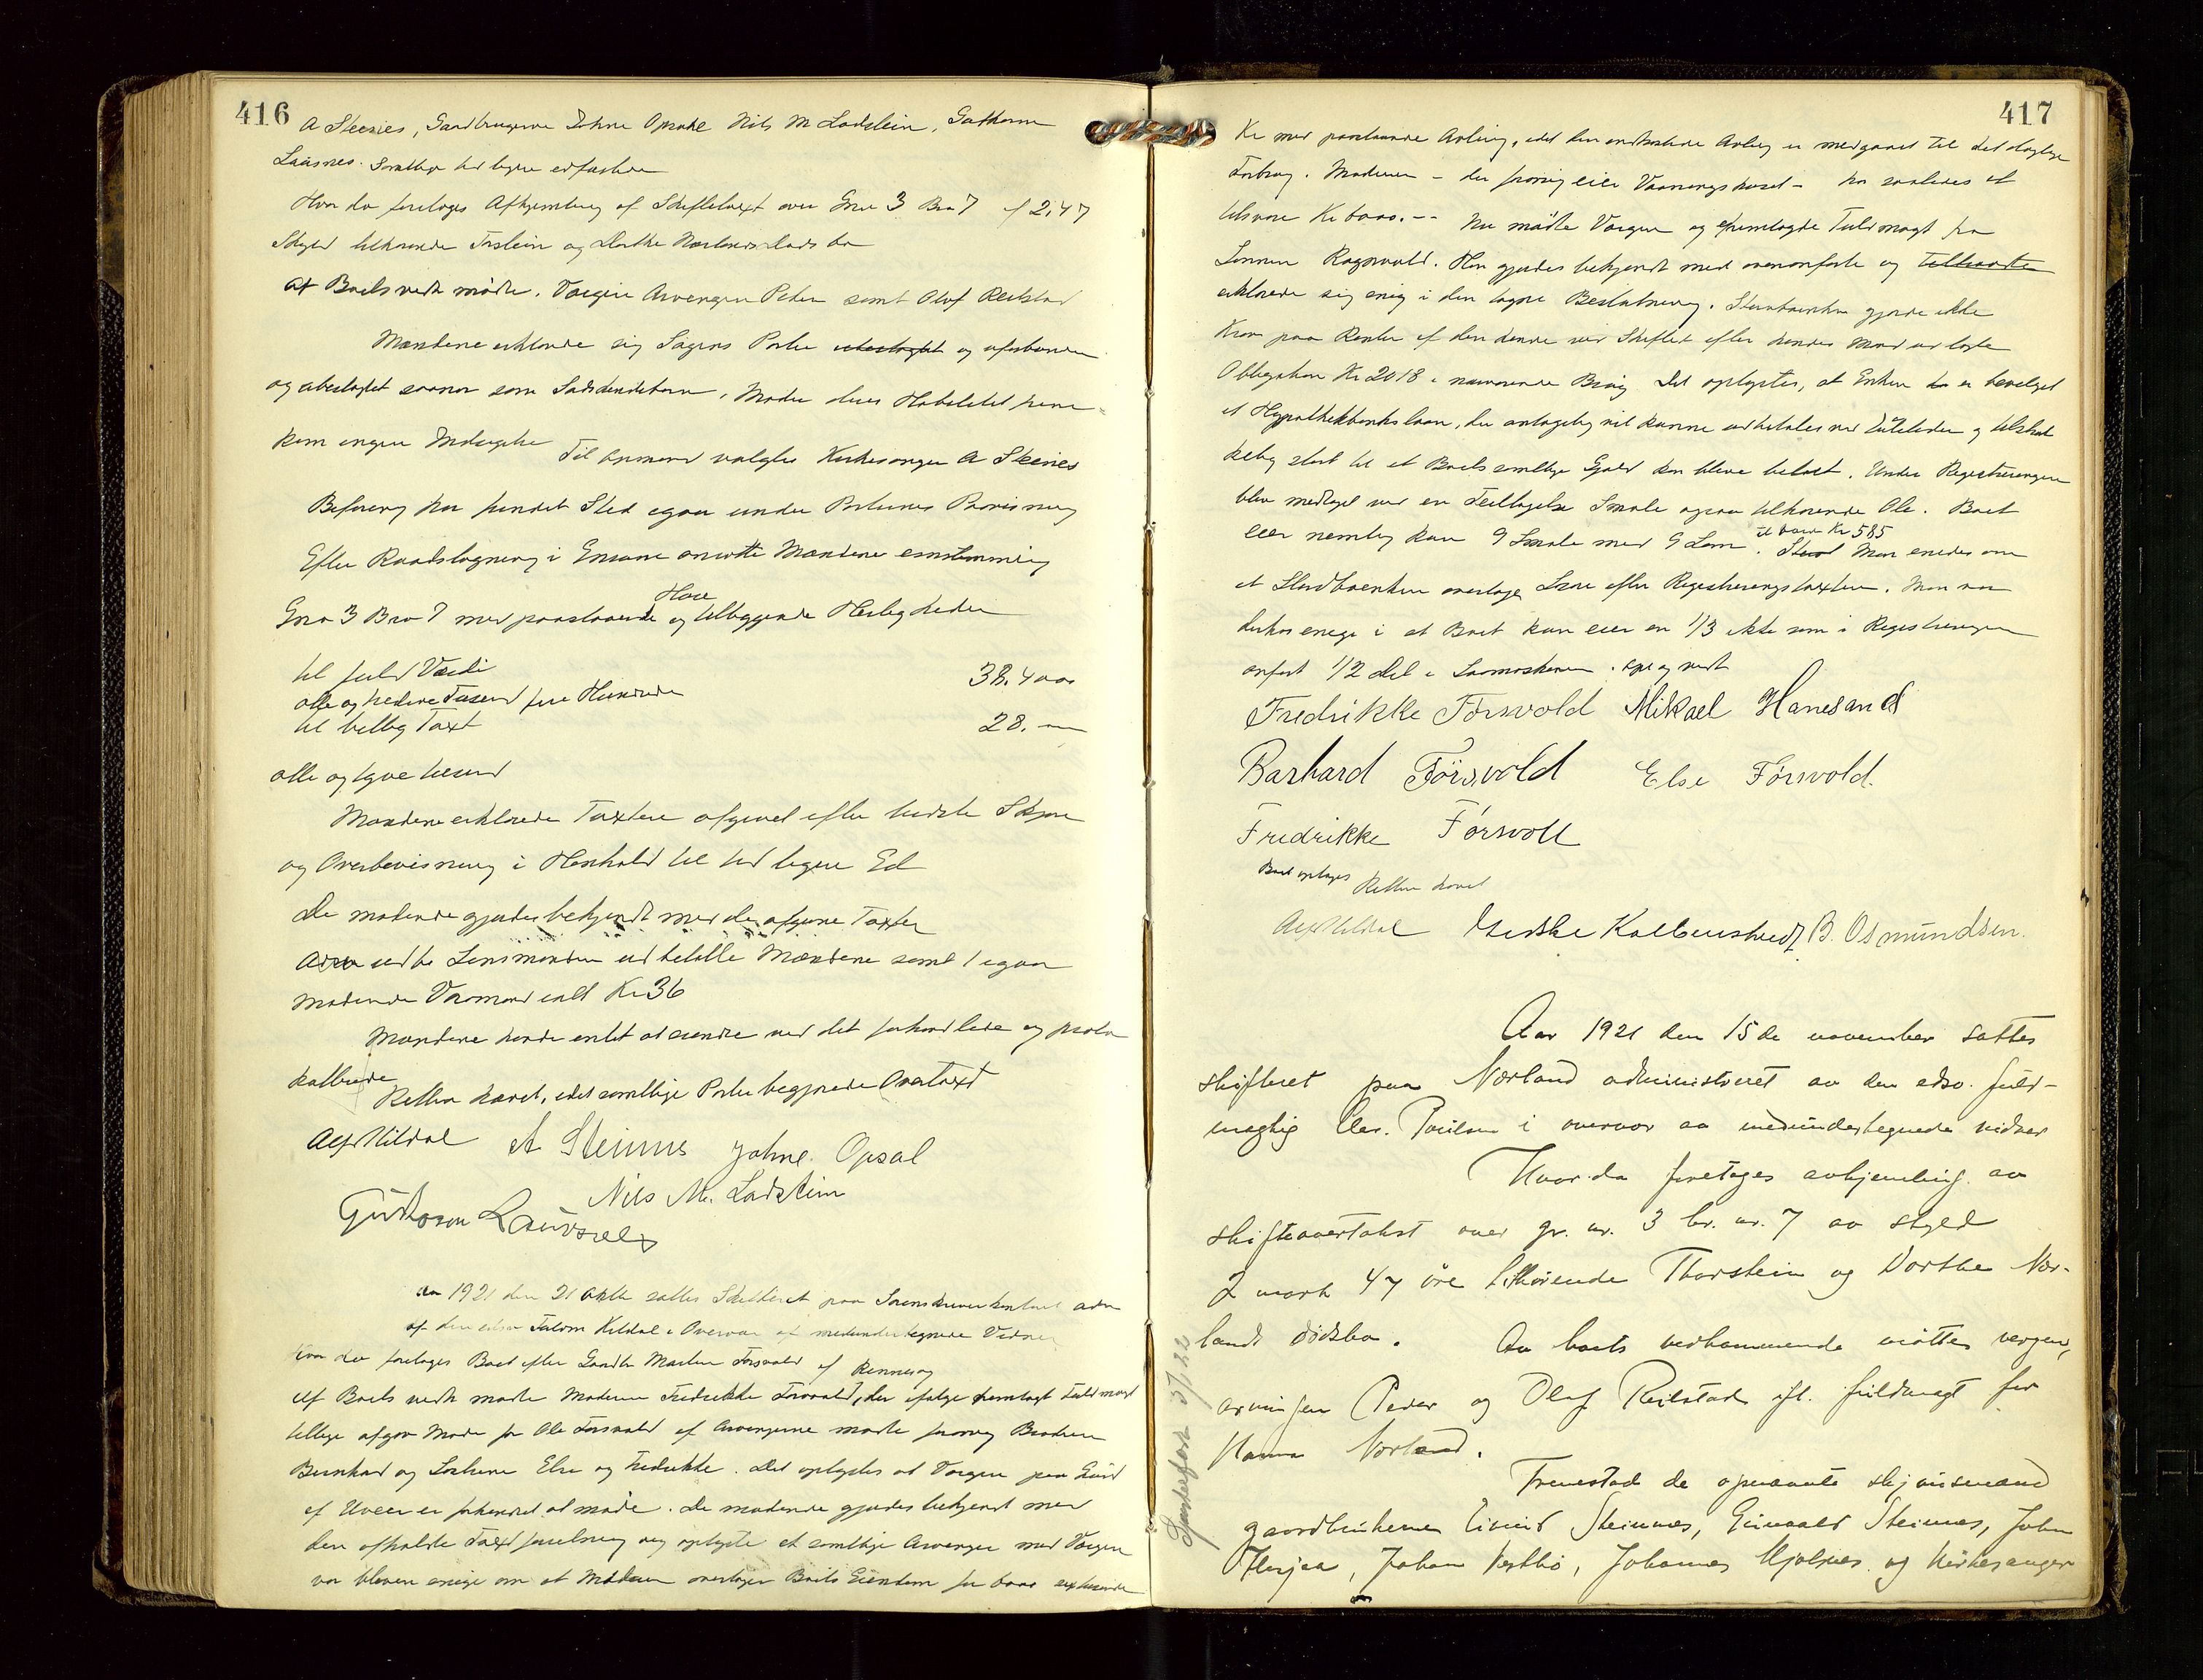 416
A Steenes, Gaardbrugerne Johne Opsahl Nils M Ladstein, Gathorm
Laasnes. Samtlige tidligere edfæstede
Hvor da foretoges Afhjemling af Skiftetaxt over Gno 3 Bno 7 af 2,47
Skyld tilhørende Torstein og Dorthe Nærlands Døds bo
Af Boets vedk mødte. Vergen Arvingen Peder samt Olaf Reilstad
Mændene erklærede sig Sagens Parter ubeslægtet og uforbunden
og ubeslægtet saavel som Sødskendebarn. Mod deres Habilitet frem-
kom ingen Indsigelse Til Opmand valgtes Kirkesanger A Steenes
Befaring har fundet Sted igaar under Parternes Paavisning
Efter Raadslagning i Enrum ansatte Mændene eenstemmig
Gno 3 Bno 7 med paastaaende Huse og tilliggende Herligheder
til fuld Værdi 38.400
otte og tredive Tusend fire Hundrede
til billig Taxt 28.
otte og tyve tusend
Mændene erklærede Taxten afgivet efter bedste Skjøn
og Overbevisning i Henhold til tidligere Ed
De mødende gjordes bekjendt med de afgivne Taxter
Lensmanden udbetalte Mændene samt 1 igaar
mødende Varamand ialt Kr 36
Mændene havde intet at erindre ved det forhandlede og proto
kollerede
Retten hævet, idet samtlige Parter begjærede Overtaxt
Alf Kildal A Steinnes Johne. Opsal
Nils M. Ladstein
Aar 1921 den 21 Oktbr sattes Skifteret paa Sorenskriverkontoret adm
af den edsv Fuldm Kildal i Overvær af medundertegnede Vidner
Hvor da foretoges Boet efter Gaardbr Martin Forsvold af Rennesøy
Af Boets vedk mødte Moderen Fredrikke Forsvold, der ifølge fremlagt Fuldmagt
tillige afgav Møde for Ole Forsvold af Arvingerne mødte forøvrig Brodren
Bernhard og Søstrene Else og Fredrikke. Det oplystes at Vergen paa Grund
af Uveir er forhindret at møde. De mødende gjordes bekjendt med
den afholdte Taxtforretning og oplyste at samtlige Arvinger med Vergen
var bleven enige om at Moderen overtager Boets Eiendom for
417
Kr med paastaaende Avling, idet den indhøstede Avling er medgaaet til det daglige
Forbrug. Moderen - der forøvrig eier Vaaningshuset - har saaledes at
tilsvare Kr 6000.-- Nu mødte Vergen og fremlagde Fuldmagt fra
Sønnen Ragnvald. Han gjordes bekjendt med ovenanførte og
erklærede sig enig i den tagne Beslutning. Stervboenken gjorde ikke
Krav paa Renter af den hende ved Skiftet efter hendes Mand udlagte
Obligation Kr 2018 i nærværende Bo Det oplystes, at Enken er bevilget
et Hypothekbankslaan, der antagelig vil kunne udbetales ved Juletider og tilstræk
kelig stort til at Boets samtlige Gjæld kan blive betalt. Under Registreringen
blev medtaget ved en Feiltagelse Smale ogsaa tilhørende Ole. Boet
eier nemlig kun 9 Smale med 9 Lam til Værdi Kr 585. Man enedes om
at Stervboenken overtager Løsøre efter Registreringstaxten. Man var
derhos enige i at Boet kun eier en 1/3 ikke som i Registreringen
anført 1/2 del i Saamaskinen. Opl og vedt
Fredrikke Førsvold Mikael Hanesand
Barhard Førsvold Else Førsvold.
Fredrikke Førsvoll
Boet optages Retten hævet
Alf Kildal B. Osmundsen.
Aar 1921 den 15de november sattes
skifteret paa Nærland administreret av den edsv. fuld-
mægtig Chr. Poulsen i overvær av medundertegnede vidner
Hvor da foretages avhjemling av
skifteovertakst over gr. nr. 3 br. nr. 7 av skyld
2 mark 47 øre tilhørende Thorstein og Dorthe Nær-
lands dødsbo. Av boets vedkommende møtte vergen,
arvingen Peder og Olaf Reilstad ifl. fuldmagt for
Hanna Nærland.
Fremstod de opnævnte skjønsmænd
gaardbrukerne Eivind Steinnes, Enevald Steinnes, John
Herjaa, Johan Vestbø, Johannes Mjølsnes og kirkesanger